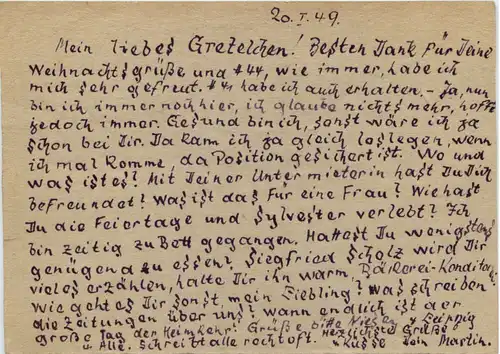 20. I. 49.
Mein liebes Gretelchen! Besten Dank für Deine
Weihnachtsgrüße und #44, wie immer, habe ich
mich sehr gefreut. #41 habe ich auch erhalten. - Ja, nun
bin ich immer noch hier, ich glaube nichts mehr, hoffe
jedoch immer. Gesund bin ich, sonst wäre ich ja
schon bei Dir. Da kann ich ja gleich loslegen, wenn
ich mal komme, da Position gesichert ist. Wo und
was ist es? Mit Deiner Untermieterin hast Du Dich
befreundet? Was ist das für eine Frau? Wie hast
Du die Feiertage und Sylvester verlebt? Ich
bin zeitig zu Bett gegangen. Hattest Du wenigstens
genügend zu essen? Siegfried Scholz wird Dir
vieles erzählen, halte Dir ihn warm. Bäckerei-Konditorei
Wie geht es Dir sonst, mein Liebling? Was schreiben
die Zeitungen über uns? Wann endlich ist der
große Tag der Heimkehr! Grüße bitte Leipzig
u. Alle. Schreibt alle recht oft. Herzlichste Grüße
+ Küsse Dein Martin.